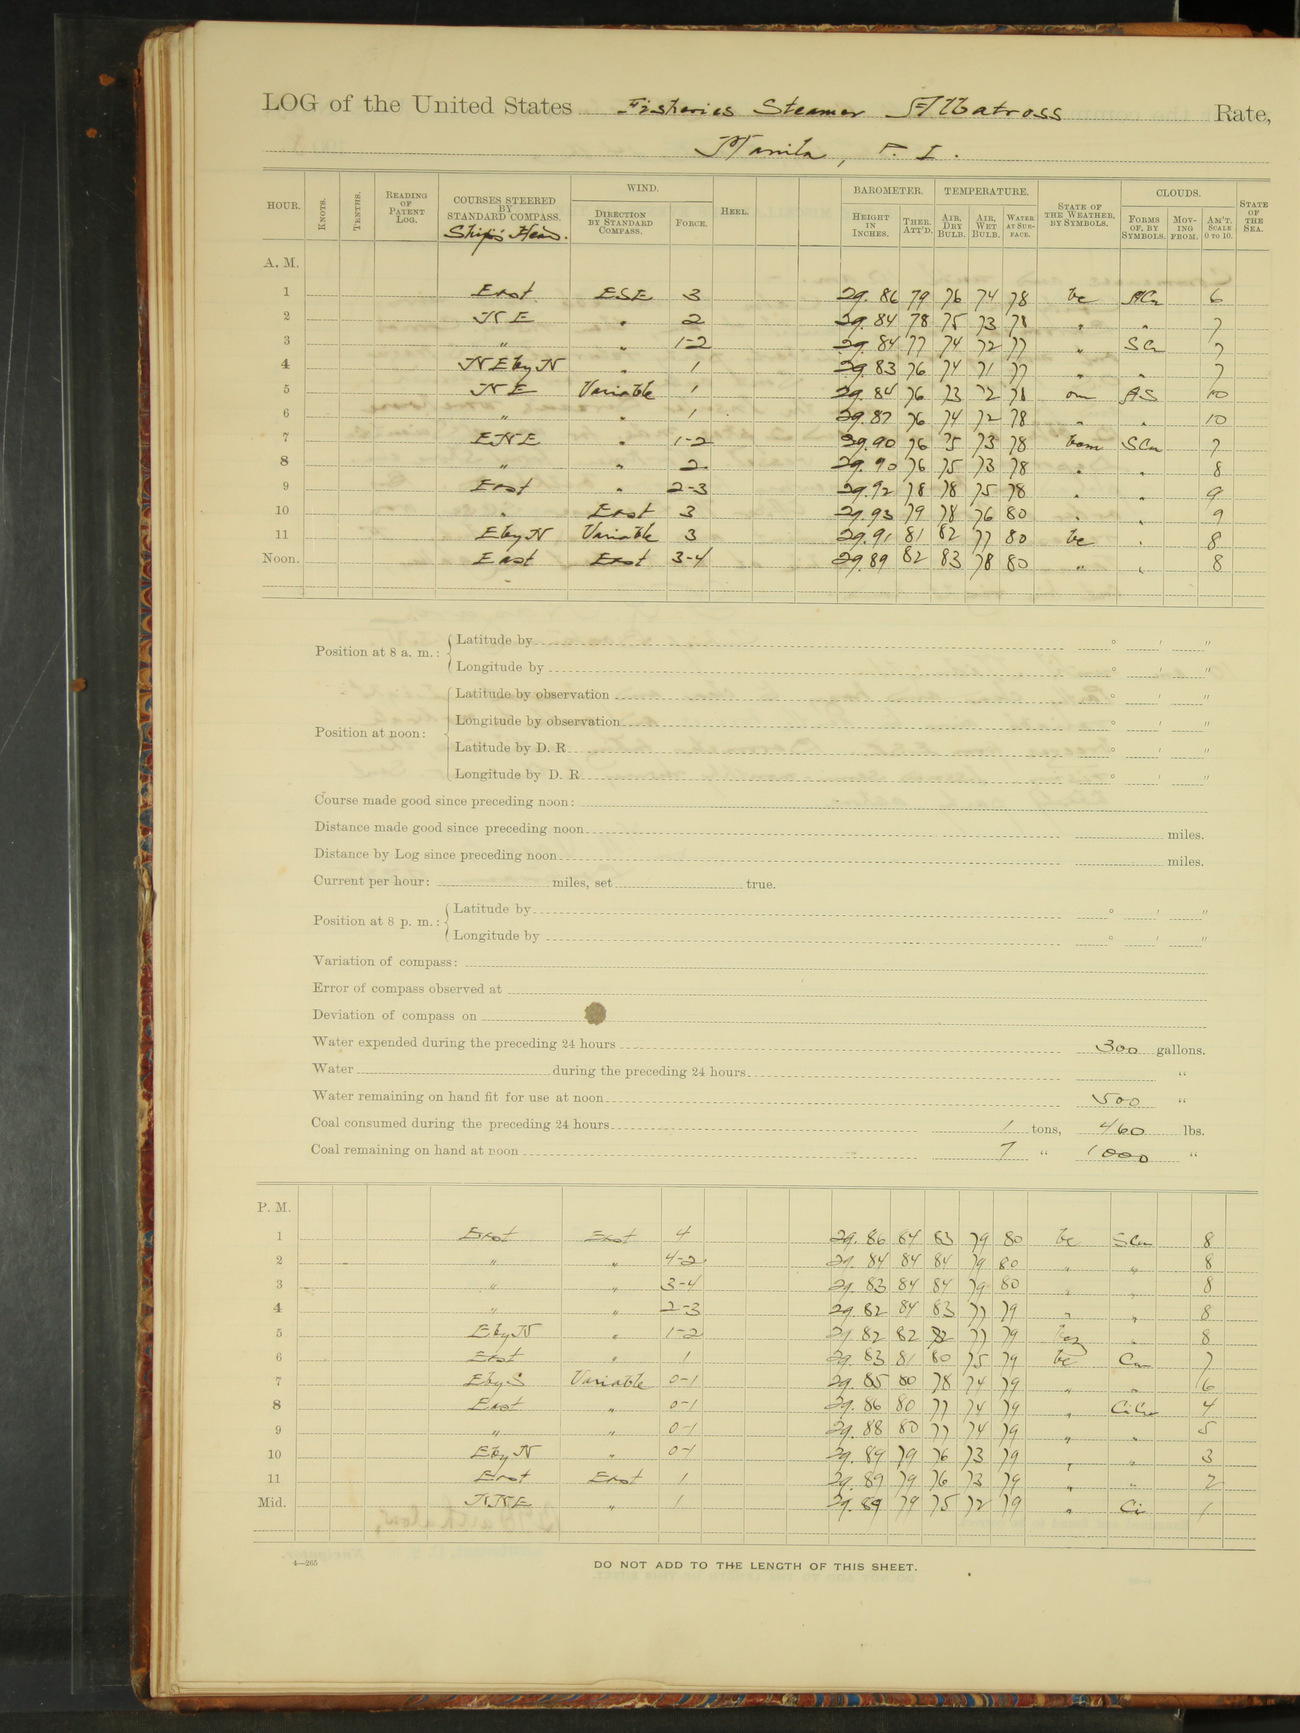 LOG of the United States Fisheries Steamer Albatross Rate,
Manila, P. I.
HOUR. KNOTS. TENTHS. READING OF PATENT LOG. COURSES STEERED BY STANDARD COMPASS. Ship's Head. WIND. DIRECTION BY STANDARD COMPASS. FORCE. HEEL. BAROMETER. HEIGHT IN INCHES. THER. ATT'D. TEMPERATURE. AIR, DRY BULB. AIR, WET BULB. WATER AT SURFACE. STATE OF THE WEATHER, BY SYMBOLS. CLOUDS. FORMS OF, BY SYMBOLS. MOVING FROM. AM'T. SCALE 0 TO 10. STATE OF THE SEA.
A. M.
1 East ESE 3 29.86 79 76 74 78 bc ACu 6
2 NE " 2 29.84 78 75 73 78 " " 7
3 " " 1-2 29.84 77 74 72 77 " SCu 7
4 NE by N " 1 29.83 76 74 71 77 " " 7
5 NE Variable 1 29.84 76 73 72 78 om AS 10
6 " " 1 29.87 76 74 72 78 " " 10
7 ENE " 1-2 29.90 76 75 73 78 bcm SCu 7
8 " " 2 29.90 76 75 73 78 " " 8
9 East " 2-3 29.92 78 78 75 78 " " 9
10 " East 3 29.93 79 78 76 80 " " 9
11 E by N Variable 3 29.91 81 82 77 80 bc " 8
Noon. East East 3-4 29.89 82 83 78 80 " " 8
Position at 8 a. m.: Latitude by ° ' "
Longitude by ° ' "
Position at noon: Latitude by observation ° ' "
Longitude by observation ° ' "
Latitude by D. R. ° ' "
Longitude by D. R. ° ' "
Course made good since preceding noon:
Distance made good since preceding noon miles.
Distance by Log since preceding noon miles.
Current per hour: miles, set true.
Position at 8 p. m.: Latitude by ° ' "
Longitude by ° ' "
Variation of compass:
Error of compass observed at
Deviation of compass on
Water expended during the preceding 24 hours 300 gallons.
Water during the preceding 24 hours "
Water remaining on hand fit for use at noon 500 "
Coal consumed during the preceding 24 hours 1 tons, 460 lbs.
Coal remaining on hand at noon 7 " 1000 "
P. M.
1 East East 4 29.86 84 83 79 80 bc SCu 8
2 " " 4-2 29.84 84 84 79 80 " " 8
3 " " 3-4 29.83 84 84 79 80 " " 8
4 " " 2-3 29.82 84 83 77 79 " " 8
5 E by N " 1-2 29.82 82 82 77 79 " 8
6 East " 1 29.83 81 80 75 79 bc Cu 7
7 E by S Variable 0-1 29.85 80 78 74 79 " " 6
8 East " 0-1 29.86 80 77 74 79 " CiCu 4
9 " " 0-1 29.88 80 77 74 79 " " 5
10 E by N " 0-1 29.89 79 76 73 79 " " 3
11 East East 1 29.89 79 76 73 79 " " 2
Mid. NNE " 1 29.89 79 75 72 79 " Ci 1
4—265
DO NOT ADD TO THE LENGTH OF THIS SHEET.